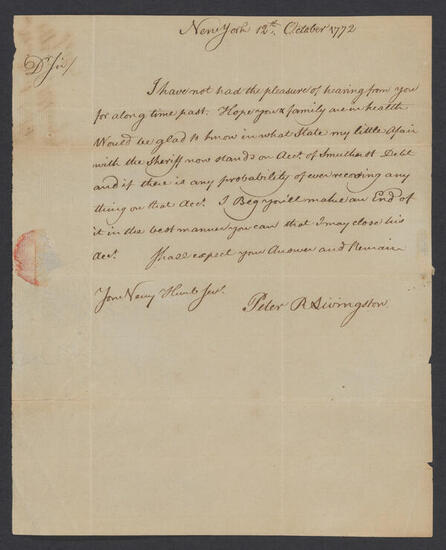 New York 12th. October 1772
Dr Sir/
I have not had the pleasure of hearing from you
for along time past. Hope you & family are in health
Would be glad to know in what State my little Afair
with the Sheriff now stands on Acct. of Debt
and if there is any probability of ever recoving any
thing on that Acct. I Beg you'll make an End of
it in the best manner you can that I may close his
Acct. Shall expect your Answer and Remain
Your Humb Ser.
Peter R Livingston